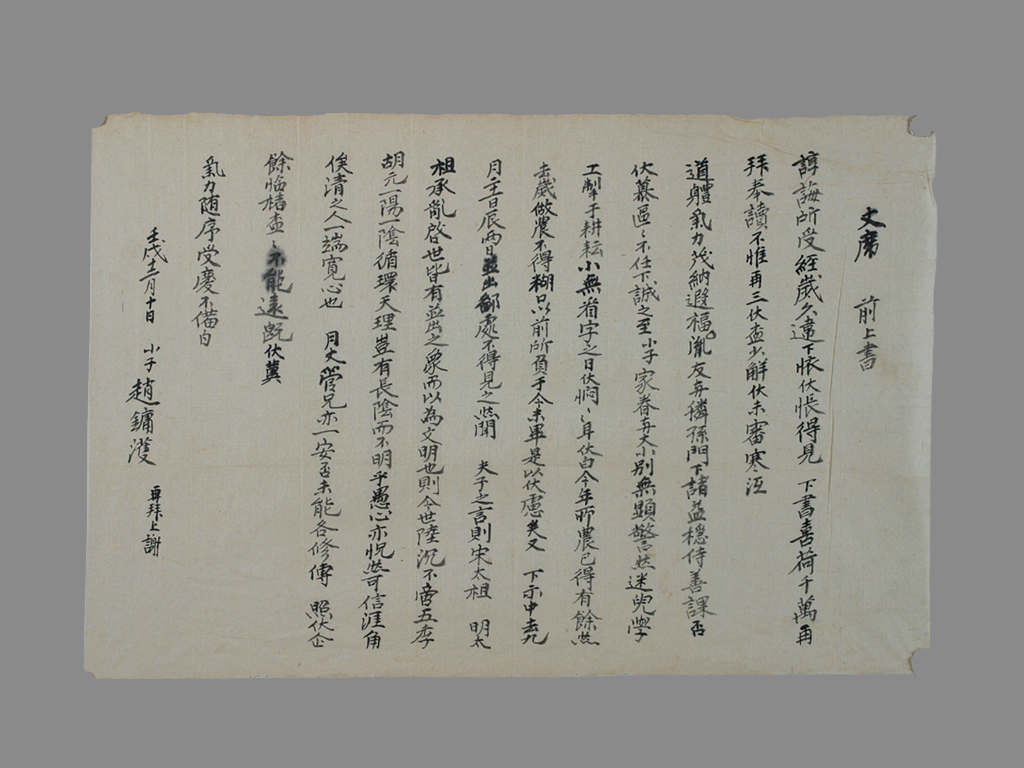 文席　前上書
諄誨所受經歲久違下懷伏悵得見　下書喜荷千萬再
拜奉讀不惟再三伏查少解伏未審寒沍
道體氣力茂納遐福胤友弁攜孫門下諸益穩侍善課否
伏慕區〻不任下誠之至小子家眷弁大小別無顯警然迷兒學
工掣于耕耘小無着字之日伏悶〻耳伏白今年所農已得有餘然
去歲做農不得糊口以前所負于今未畢是以伏慮矣又　下示中去九
月二十一日辰兩日並出鄙處不得見之然聞　夫子之言則宋太祖　明太
祖承亂啓世皆有並出之象而以為文明也則今世陸沉不啻五季
胡元一陽一陰循環天理豈有長陰而不明乎愚心亦怳然可信涯角
俟清之人一端寬心也　月丈營兄亦一安否未能各修傳　照伏企
餘臨楮查〻不能遠旣伏冀
氣力随序受慶不備白
壬戌十二月十日　小子趙鏞濩　再拜上謝